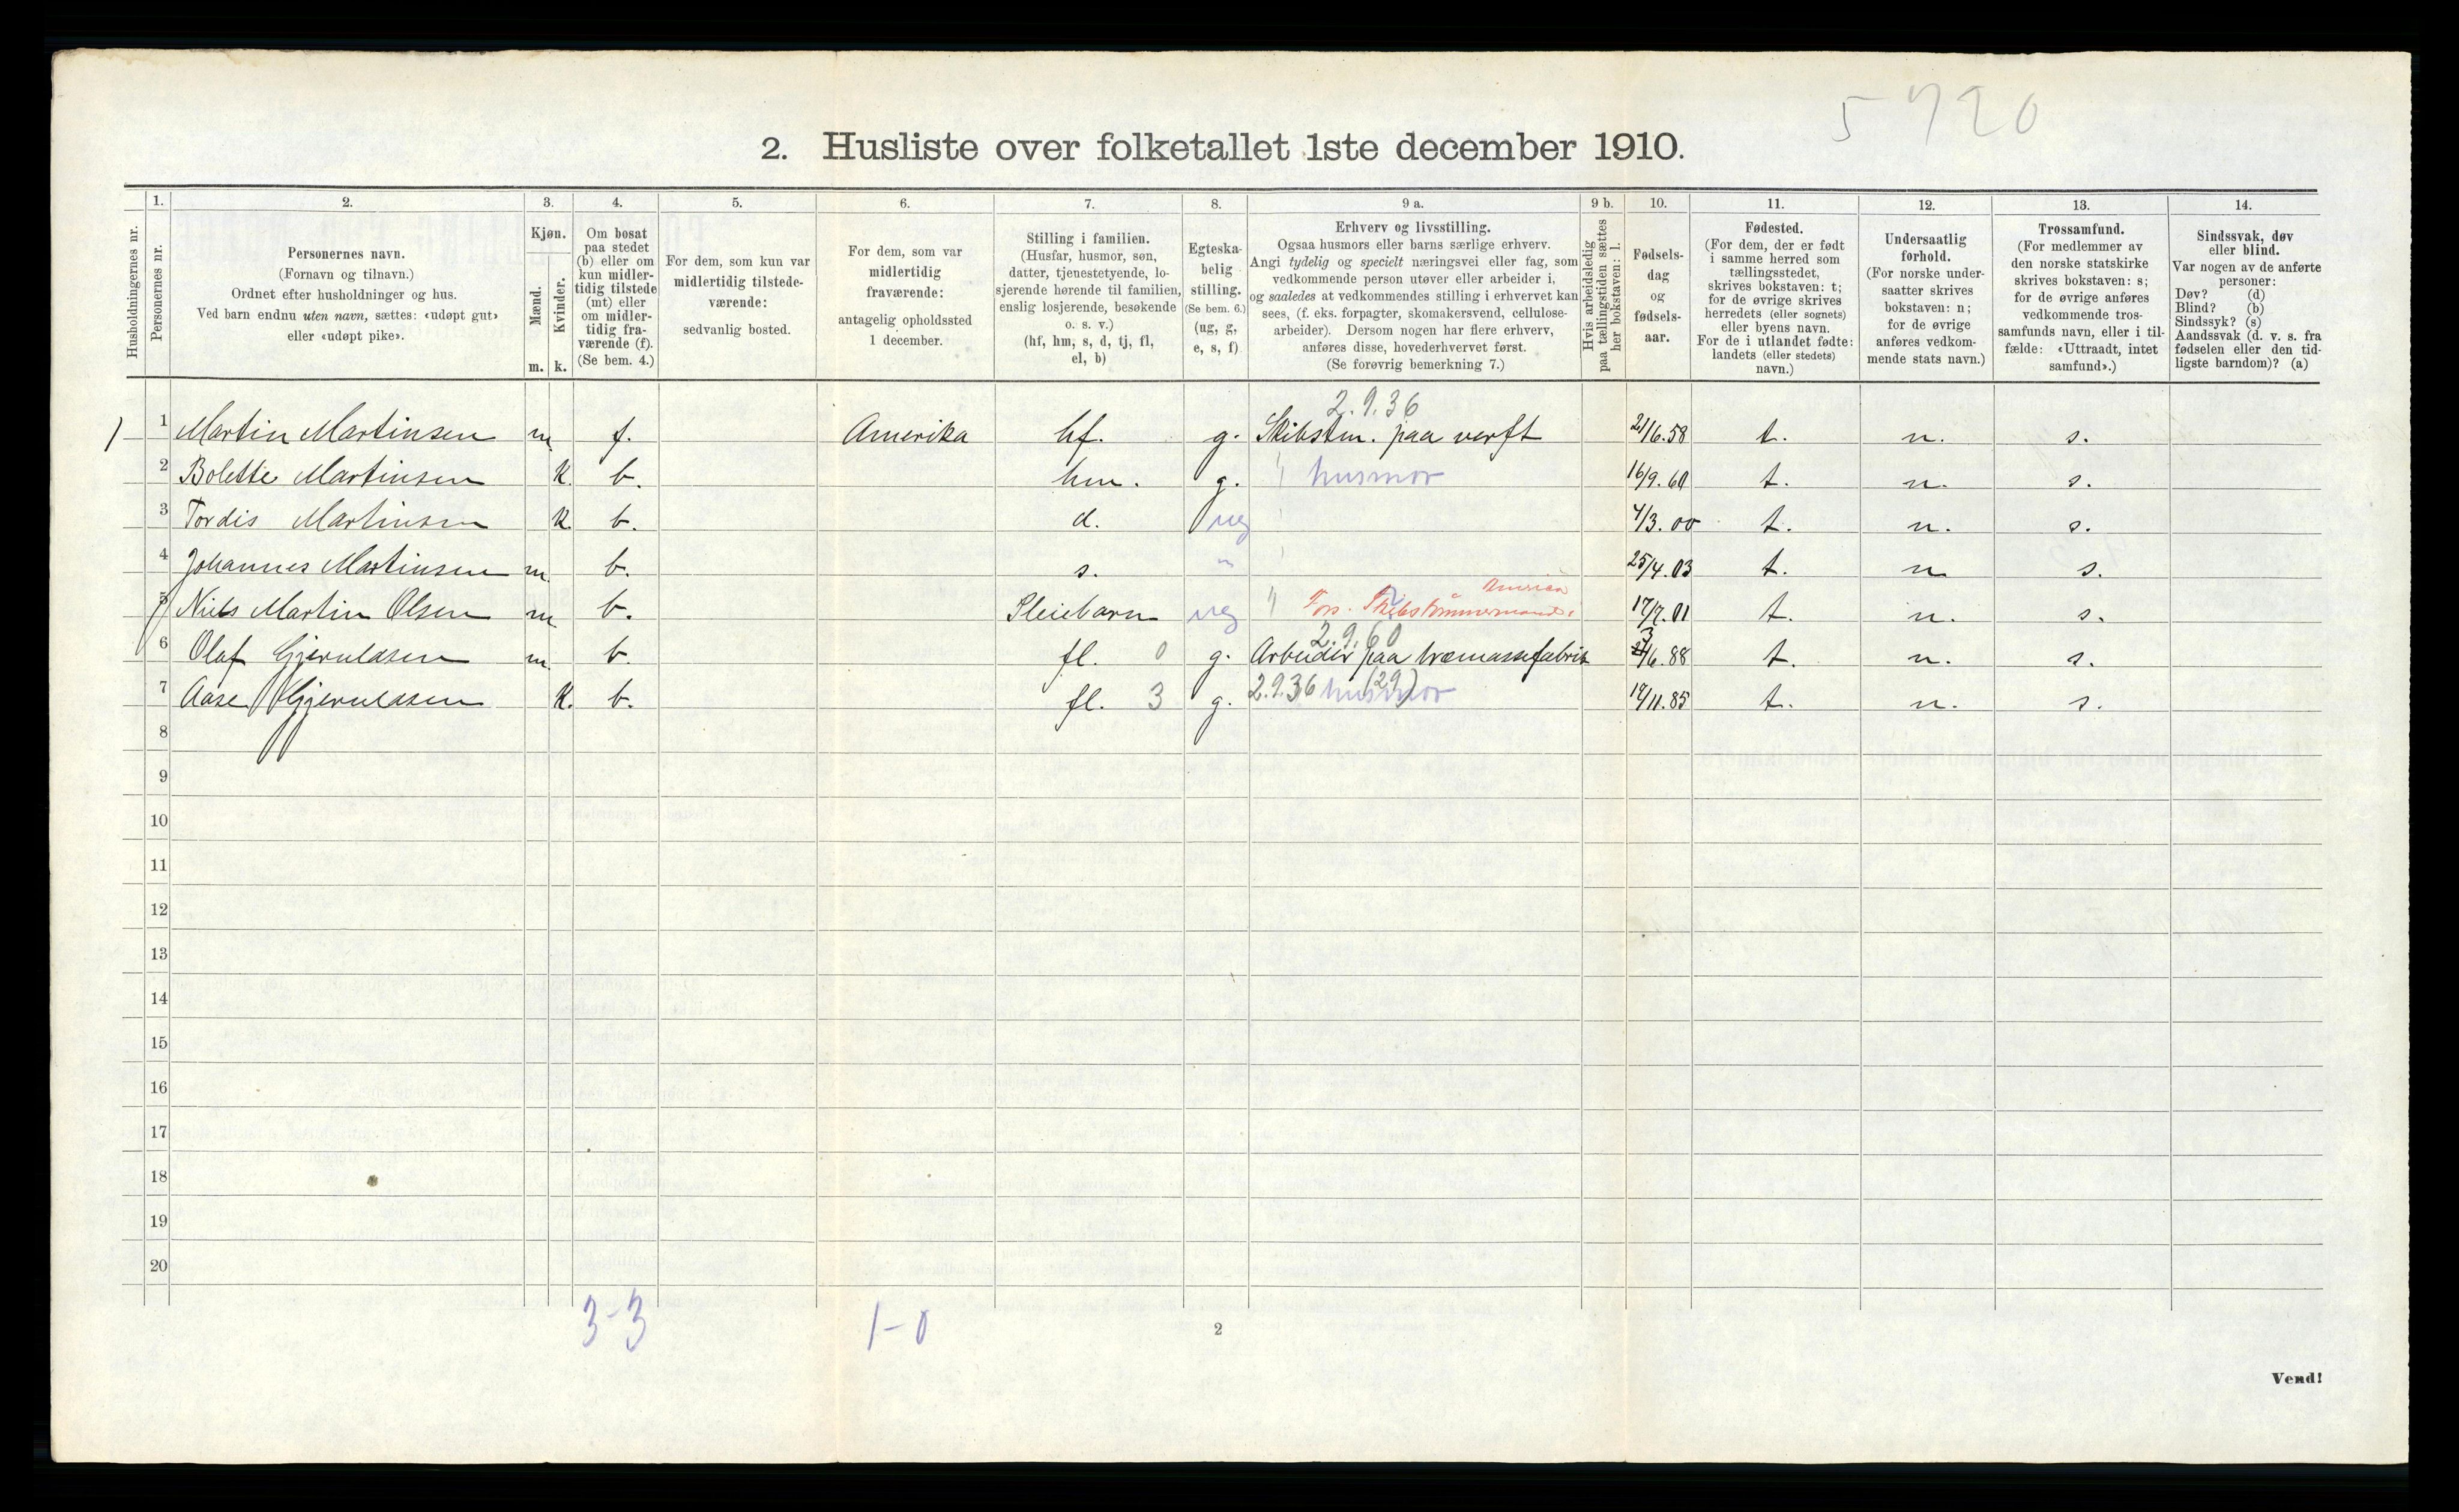 5720
2. Husliste over folketallet 1ste december 1910.
Husholdningernes nr.
1.
Personernes nr.
2.
Personernes navn.
(Fornavn og tilnavn.)
Ordnet efter husholdninger og hus.
Ved barn endnu uten navn, sættes: «udøpt gut»
eller «udøpt pike».
3.
Kjøn.
Mænd. Kvinder.
m. k.
4.
Om bosat
paa stedet
(b) eller om
kun midler-
tidig tilstede
(mt) eller
om midler-
tidig fra-
værende (f).
(Se bem. 4.)
5.
For dem, som kun var
midlertidig tilstede-
værende:
sedvanlig bosted.
6.
For dem, som var
midlertidig
fraværende:
antagelig opholdssted
1 december.
7.
Stilling i familien.
(Husfar, husmor, søn,
datter, tjenestetyende, lo-
sjerende hørende til familien,
enslig losjerende, besøkende
o. s. v.)
(hf, hm, s, d, tj, fl,
el, b)
8.
Egteska-
belig
stilling.
(Se bem. 6.)
(ug, g,
e, s, f)
9 a.
Erhverv og livsstilling.
Ogsaa husmors eller barns særlige erhverv.
Angi tydelig og specielt næringsvei eller fag, som
vedkommende person utøver eller arbeider i,
og saaledes at vedkommendes stilling i erhvervet kan
sees, (f. eks. forpagter, skomakersvend, cellulose-
arbeider). Dersom nogen har flere erhverv,
anføres disse, hovederhvervet først.
(Se forøvrig bemerkning 7.)
9 b.
Hvis arbeidsledig
paa tællingstiden sættes
her bokstaven: l.
10.
Fødsels-
dag
og
fødsels-
aar.
11.
Fødested.
(For dem, der er født
i samme herred som
tællingsstedet,
skrives bokstaven: t;
for de øvrige skrives
herredets (eller sognets)
eller byens navn.
For de i utlandet fødte:
landets (eller stedets)
navn.)
12.
Undersaatlig
forhold.
(For norske under-
saatter skrives
bokstaven: n;
for de øvrige
anføres vedkom-
mende stats navn.)
13.
Trossamfund.
(For medlemmer av
den norske statskirke
skrives bokstaven: s;
for de øvrige anføres
vedkommende tros-
samfunds navn, eller i til-
fælde: «Uttraadt, intet
samfund».)
14.
Sindssvak, døv
eller blind.
Var nogen av de anførte
personer:
Døv? (d)
Blind? (b)
Sindssyk? (s)
Aandssvak (d. v. s. fra
fødselen eller den tid-
ligste barndom)? (a)
2.9.36
1 Martin Martinsen m f. Amerika hf. g. Skibstm. paa verft 21/6.58 t. n. s.
2 Bolette Martinsen k. b. hm. g. " husmor 16/9.60 t. n. s.
3 Tordis Martinsen k b. d. ug 4/3.00 t. n. s.
4 Johannes Martinsen m. b. s. " 25/4.03 t. n s.
Amerika
5 Niels Martin Olsen m b. Pleiebarn ug " Fors. Skibstømmermand 17/7.01 t. n. s.
2.9.60
6 Olaf Gjeruldsen m. b. fl. 0 g. Arbeider paa træmassefabrik 3/6.88 t. n. s.
2.9.36 (29)
7 Aase Gjeruldsen k. b. fl. 3 g. husmor 17/11.85 t. n. s.
8
9
10
11
12
13
14
15
16
17
18
19
20
3-3 1-0
2
Vend!